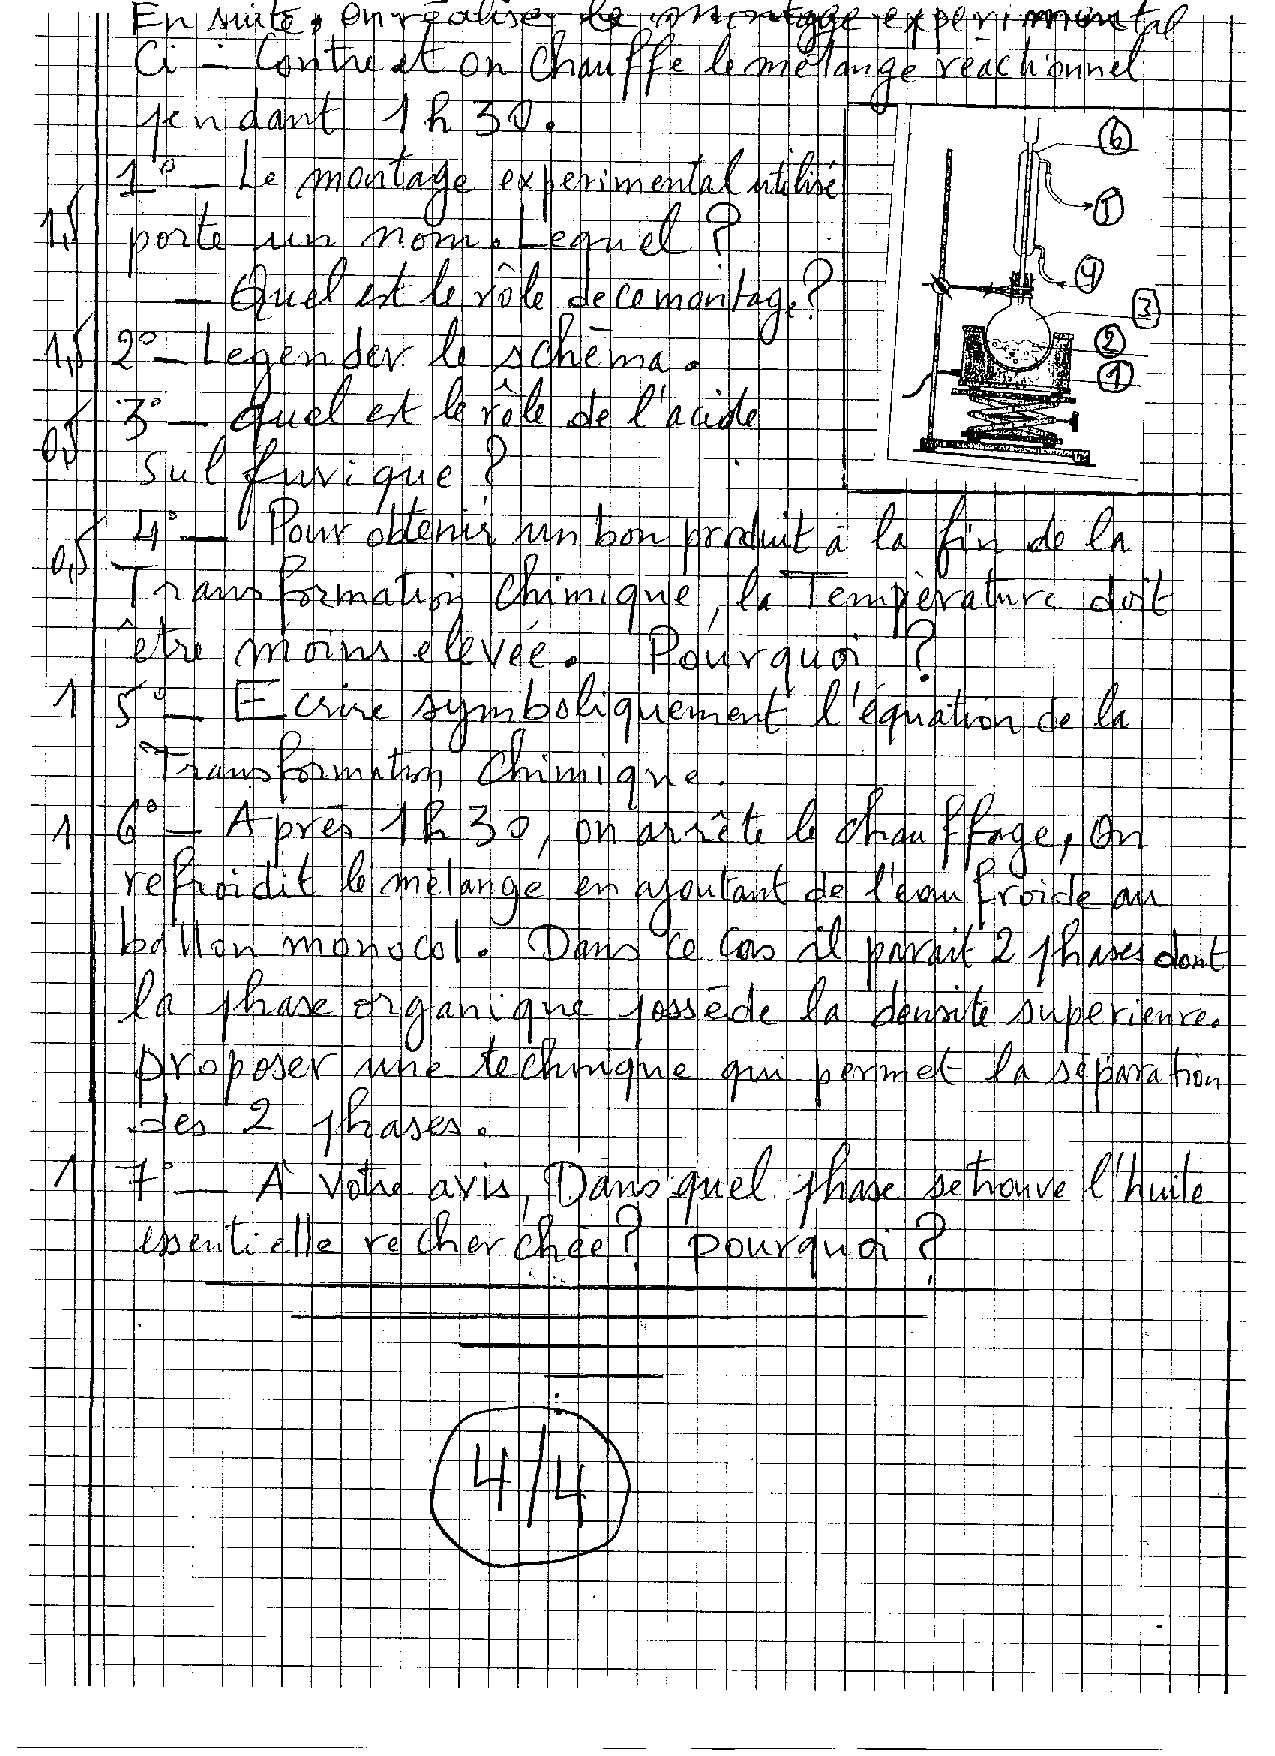 En suite, on réalise le montage experimental
Ci - Contre et on chauffe le mélange réactionnel
pendant 1h 30.
1° - Le montage experimental utilisé
1,5
porte un nom. Lequel ?
- Quel est le rôle de ce montage ?
1,5 2° - Legender le schéma.
3° - Quel est le rôle de l'acide
0,5
sulfurique ?
6
5
4
3
2
1
4° - Pour obtenir un bon produit à la fin de la
0,5
Transformation chimique, la Température doit
être moins elevée. Pourquoi ?
1 5° - Ecrire symboliquement l'équation de la
Transformation chimique.
1 6° - Après 1h 30, on arrête le chauffage, on
refroidit le mélange en ajoutant de l'eau froide au
ballon monocol. Dans ce cas il parait 2 phases dont
la phase organique possède la densité superieure.
proposer une technique qui permet la séparation
des 2 phases.
1 7° - A votre avis, Dans quel phase se trouve l'huile
essentielle recherchée ? pourquoi ?
4/4